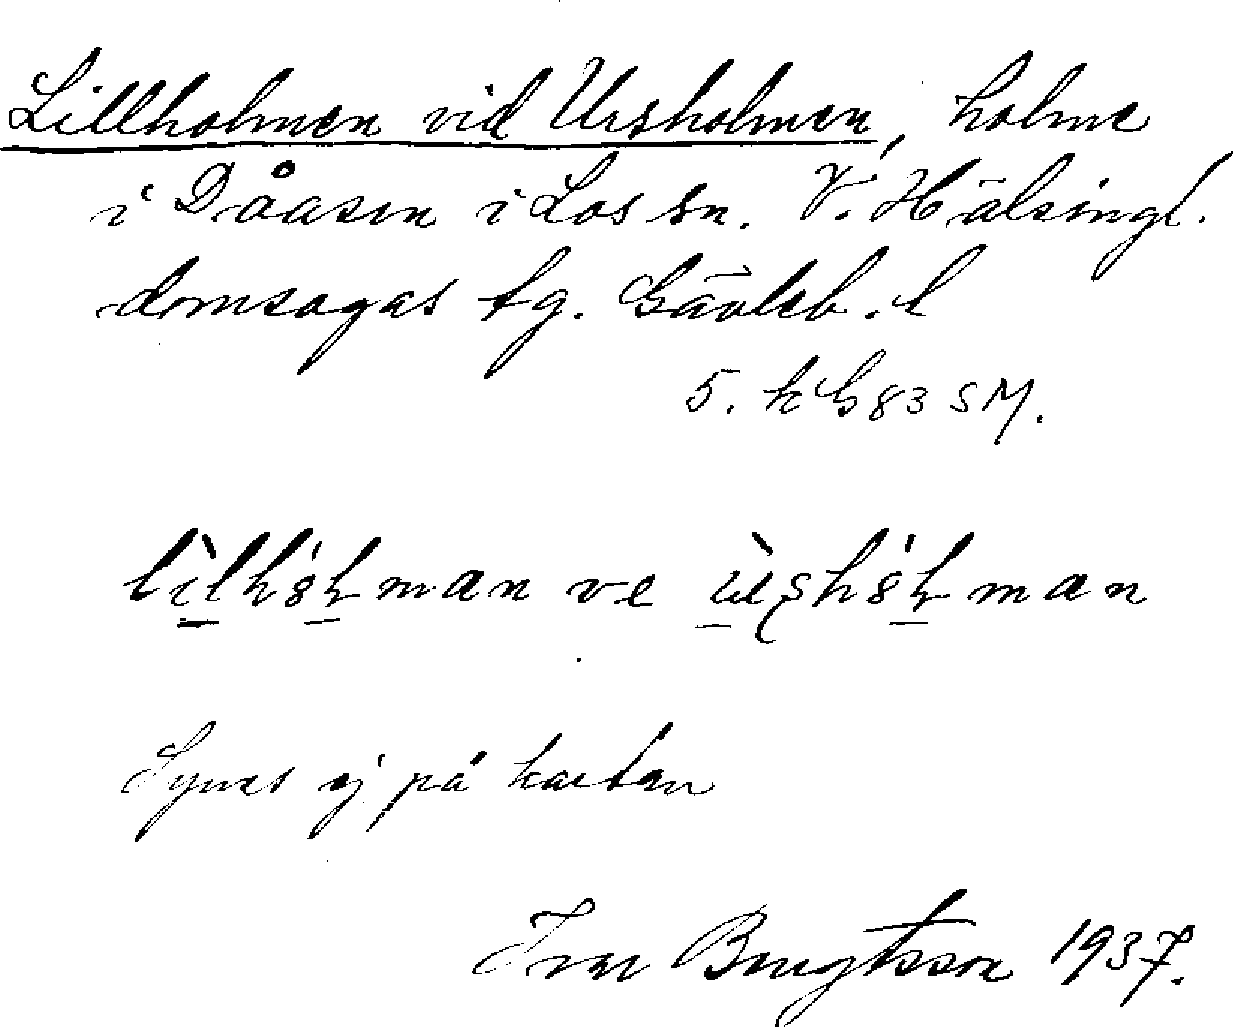 Lillholmen vid Ursholmen, holme
i Dåasen i Los sn. V. Hälsingl.
domsagas tg. Gävleb. l
5. h G 83 SM.
ve
Synes ej på kartan
Ivar Bengtsson 1937.